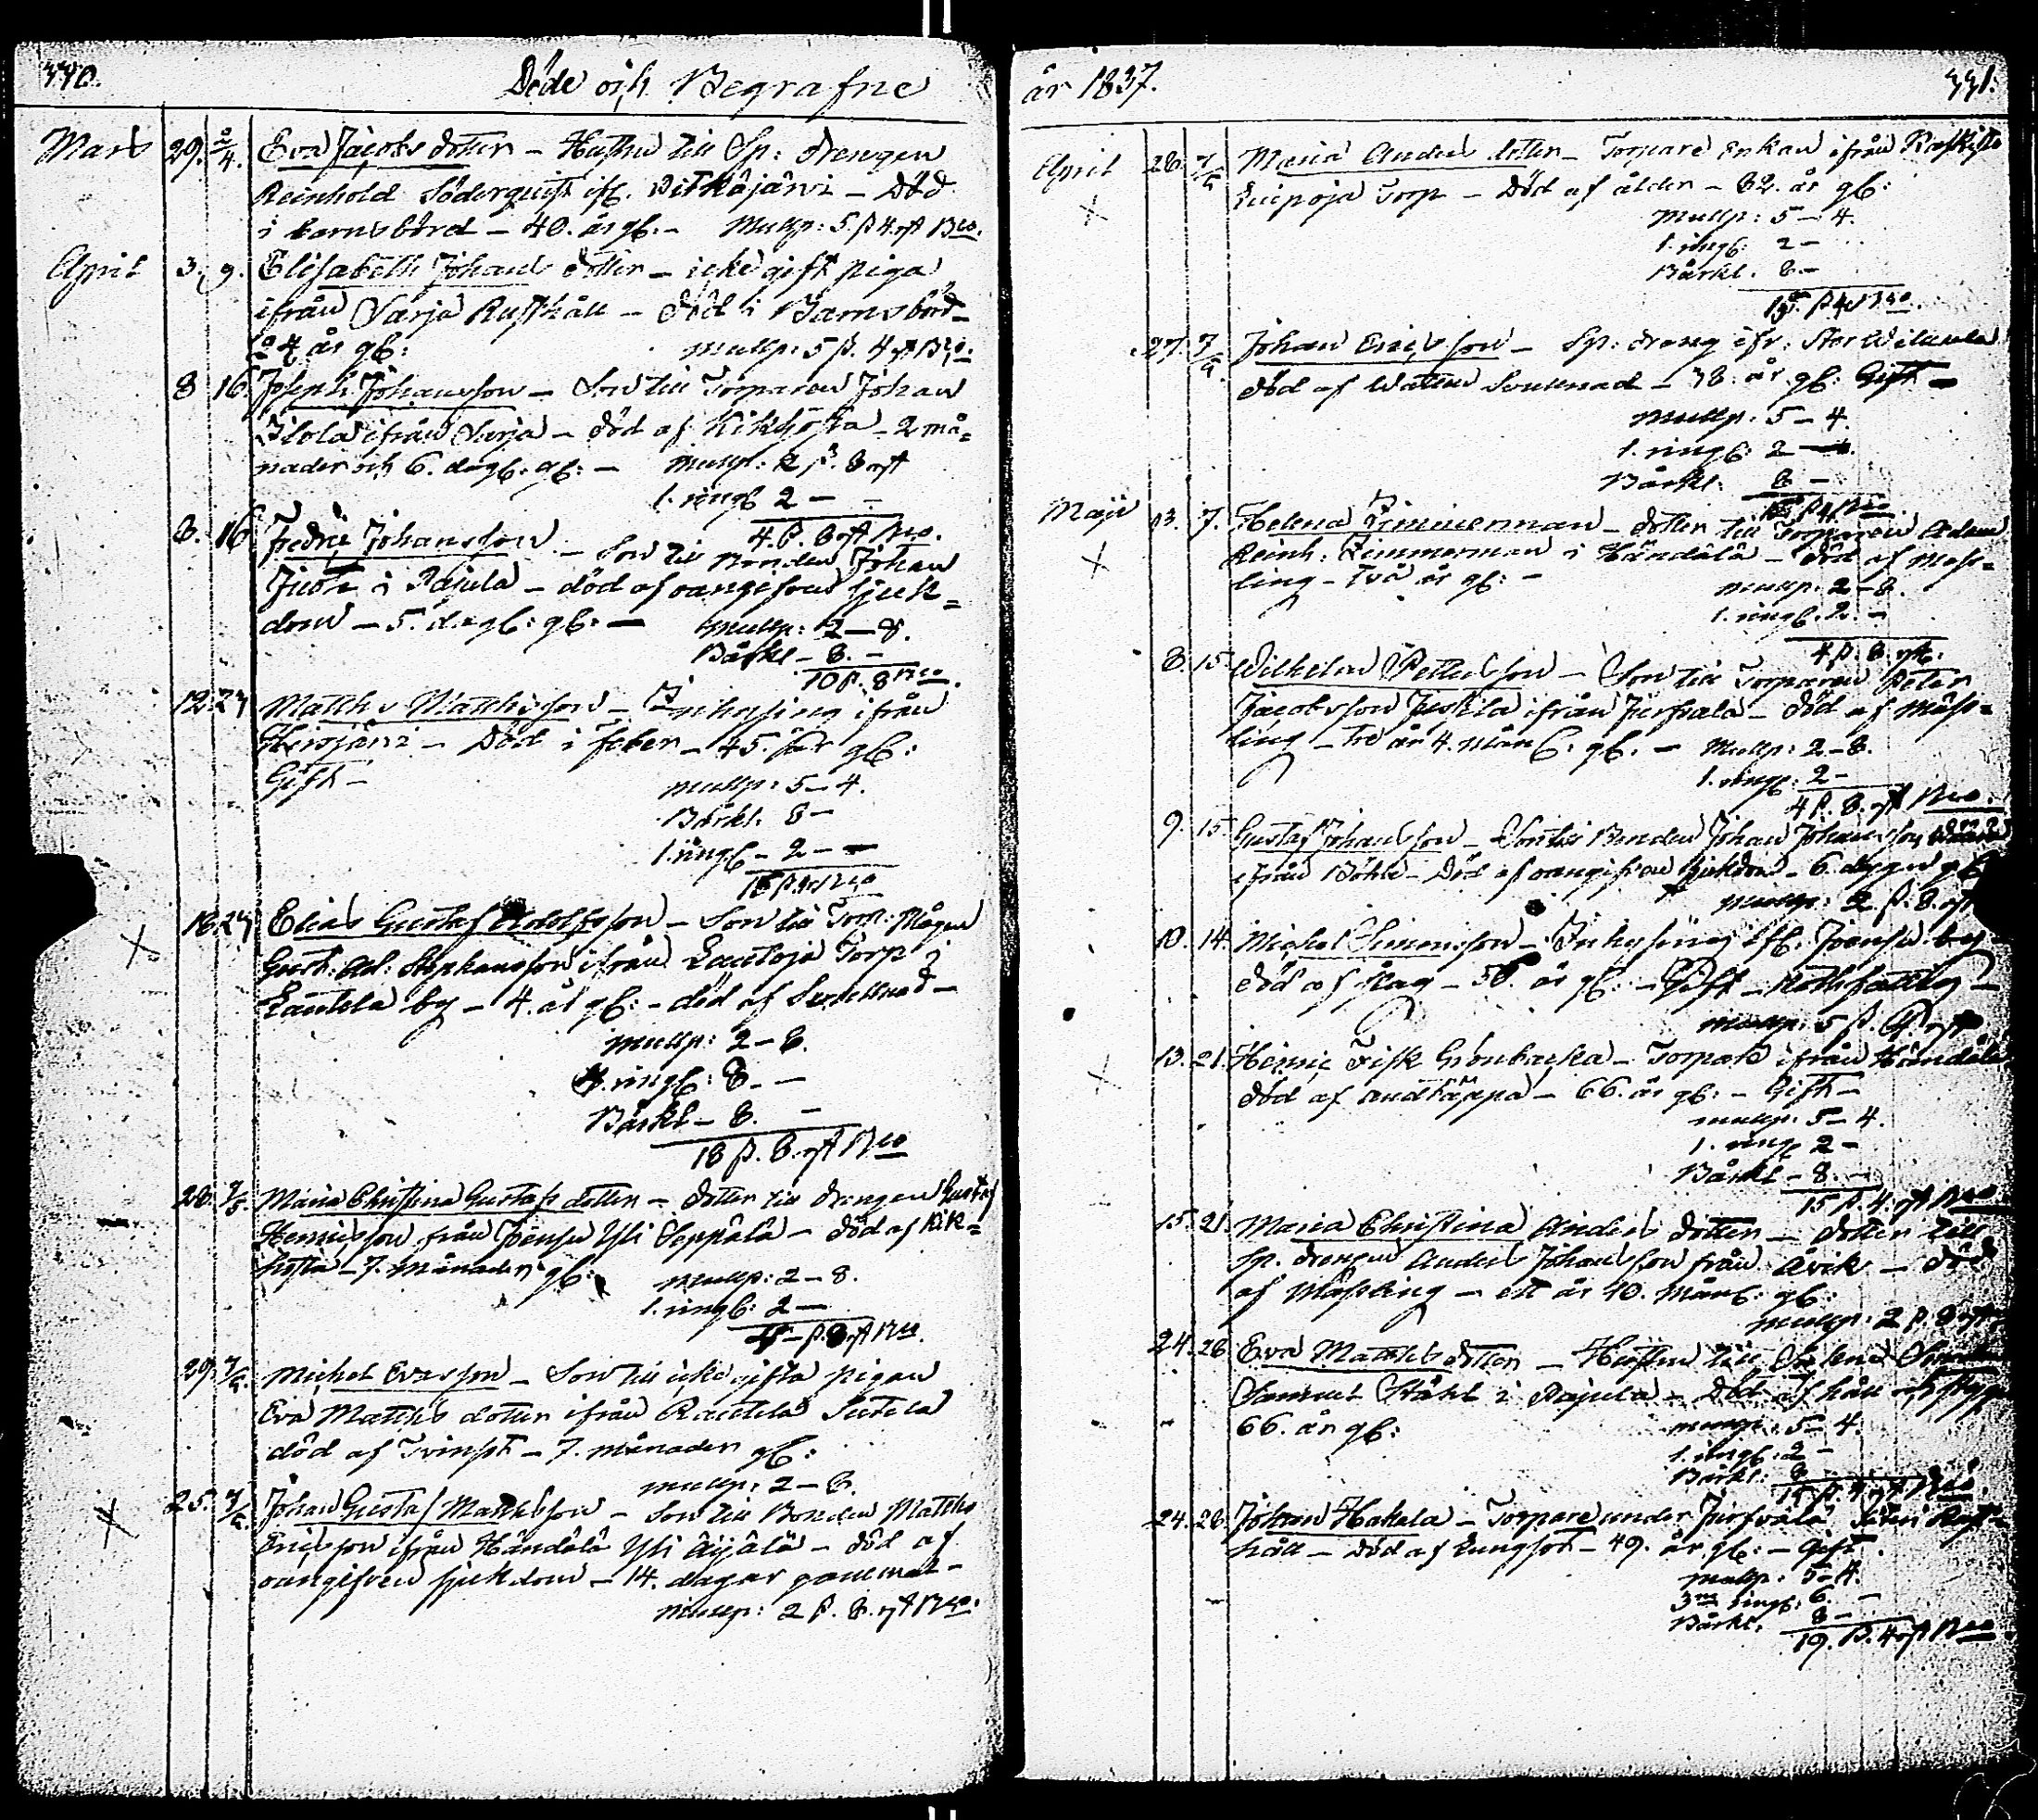 440.
Döde och Begrafne
Mars 29. 2/4. Eva Jacobs dotter – Hustru till Sp: drengen
Reinhold Söderquist ifr. Vitkäjärvi – Död
i barnsbörd – 40. år gl: – Mullp: 5. β 4 rst Bco.
April 3. 9. Elisabeth Johans dotter – icke gift piga
ifrån Särja Rusthåll – död i Barnsbörd –
år gl: Mullp: 5 β. 4 rst Bco.
8 16. Joseph Johansson – Son till Torparen Johan
Ilola ifrån Särja – död af Kikhosta – 2 må=
nader och 6. dag: gl: – Mullp: 2 β. 8 rst
1. ringn: 2 – –
4. β. 8 rst Bco.
8. 16. Fredric Johansson – Son till Bonden Johan
i Rajula – död af oangifven sjuk=
dom – 5. dag: gl: – Mullp: 2 – 8.
Bårkl – 8. –
10 β. 8 Bco.
12. 23 Matths Matthsson – Inhysing ifrån
– Död i feber – 45. år gl:
Gift – Mullp: 5 – 4.
Bårkl. 8 –
1. ringn – 2 – –
15 β. 4 rst Bco
16. 23 Elias Gustaf Adolfsson – Son till Torp: Mågen
Gust: Ad: Stephansson ifrån Torp i
Lautela by – 4. år gl: – död af
Mullp: 2 – 8.
4. ringn: 8. –
Bårkl – 8. –
18 β. 8. rst Bco
28. 7/5. Maria Christina Gustafs dotter – dotter till drengen Gustaf
Henricsson från Joensu Yli Seppälä – död af Kik=
hosta – 7. månader gl: Mullp: 2 – 8.
1. ringn: 2 –
4 – β. 8 rst Bco.
29. 7/5. Michel Evasson – Son till icke gifta pigan
Eva Matths dotter ifrån Rautela
död af Tvinsot – 7. månader gl:
Mullp: 2 – 8.
25. 7/5. Johan Gustaf Matthsson – Son till Bonden Matths
Ericsson ifrån Händälä Yli Äijälä – död af
oangifven sjukdom – 14. dagar gammal –
Mullp: 2 β. 8. rst Bco.
år 1837.
441.
April 26. 7/5 Maria Anders dotter – Torpare Enkan ifrån
Torp – Död af ålder – 82. år gl:
Mullp: 5 – 4.
1. ringn: 2 –
Bårkl. 8. –
15. β 4 rst Bco.
27. 7/5. Johan Ericsson – Sp: dreng ifr. Stor
död af Watten – 38. år gl: Gift –
Mullp. 5 – 4.
1. ringn: 2 –
Bårkl: 8 –
15 β 4 Bco.
Maji 03. 7. Helena Zimmerman – dotter till Torparen Adam
Reinh: Zimmerman i Händälä – död af Mäss=
ling – två år gl: – Mullp: 2 – 8.
1. ringn. 2. –
4 β. 8. rst.
8. 15. Wilhelm Petersson – Son till Torparen Peter
Jacobsson ifrån – död af Mäss=
ling – tre år 4. mån: gl. – Mullp: 2 – 8.
1. ringn: 2 –
4 β. 8. rst Bco.
9. 15. Gustaf Johansson – Son till Bonden Johan Johansson
ifrån – Död af oangifven sjukdom – 6. dygn gl
Mullp: 2. β. 8. rst
10. 14. Michel Simonsson – Inhysing ifr. Joensu by –
död af slag – 56. år gl: – Gift –
Mullp: 5 β. 4 rst
13. 21. Henric Fisk – Torpare ifrån Händälä
död af andtäppa – 66. år gl: – Gift –
Mullp: 5 – 4.
1. ring 2 –
Bårkl – 8. –
15 β. 4. rst Bco
15. 21. Maria Christina Anders dotter – dotter till
Sp. drengen Anders Johansson från Åvik – död
af Mässling – ett år 10. mån: gl:
Mullp: 2 β. 8 rst
24. 28 Eva Matths dotter – Hustru till
Samuel Ståhl i Rajula – Död af håll och stygn
66. år gl: Mullp: 5 – 4.
1. ringn: 2 –
Bårkl: 8
15 β. 4 rst Bco
24. 28. Johan Hakala – Torpare under
håll – död af Lungsot – 49. år. gl: – Gift.
Mullp. 5 – 4.
3ne ringn: 6. –
Bårkl. 8 –
19. β. 4 rst Bco